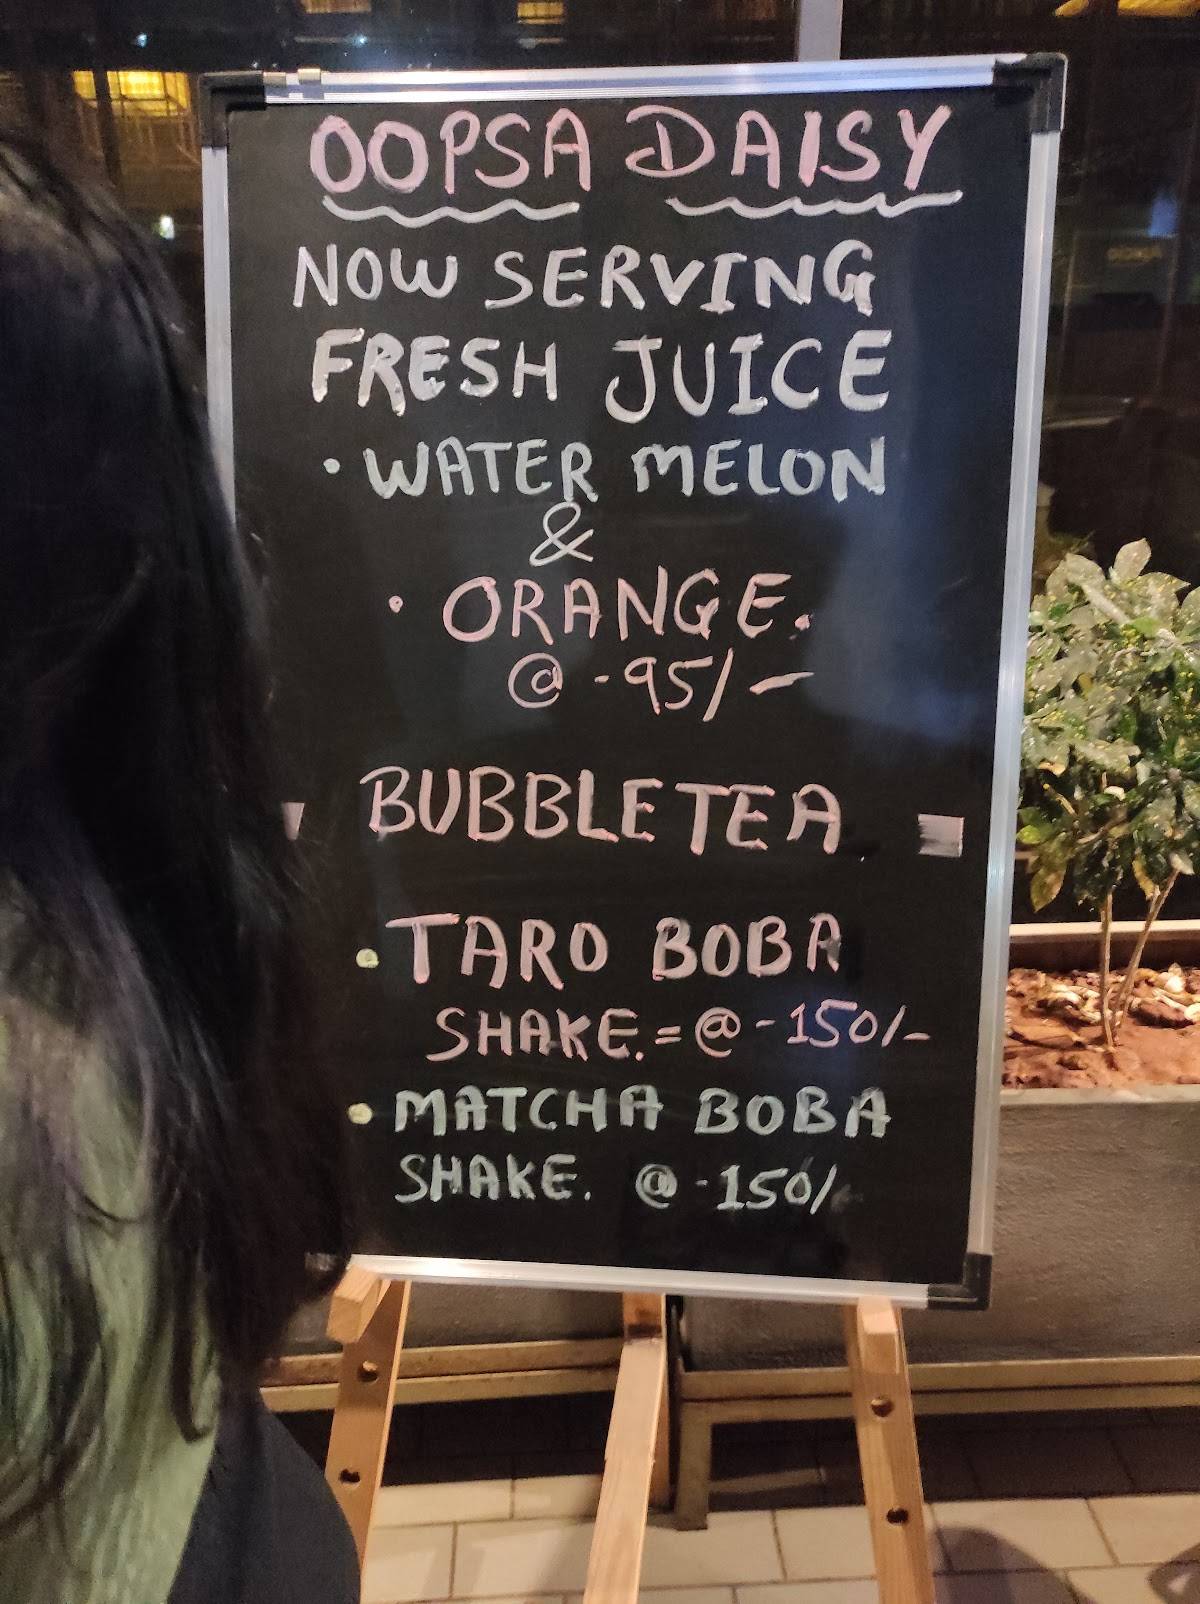 OOPSA DAISY
NOW SERVING
FRESH JUICE
• WATER MELON
&
• ORANGE.
@ - 95/-
BUBBLE TEA
• TARO BOBA
SHAKE. = @ - 150/-
• MATCHA BOBA
SHAKE. @ - 150/-